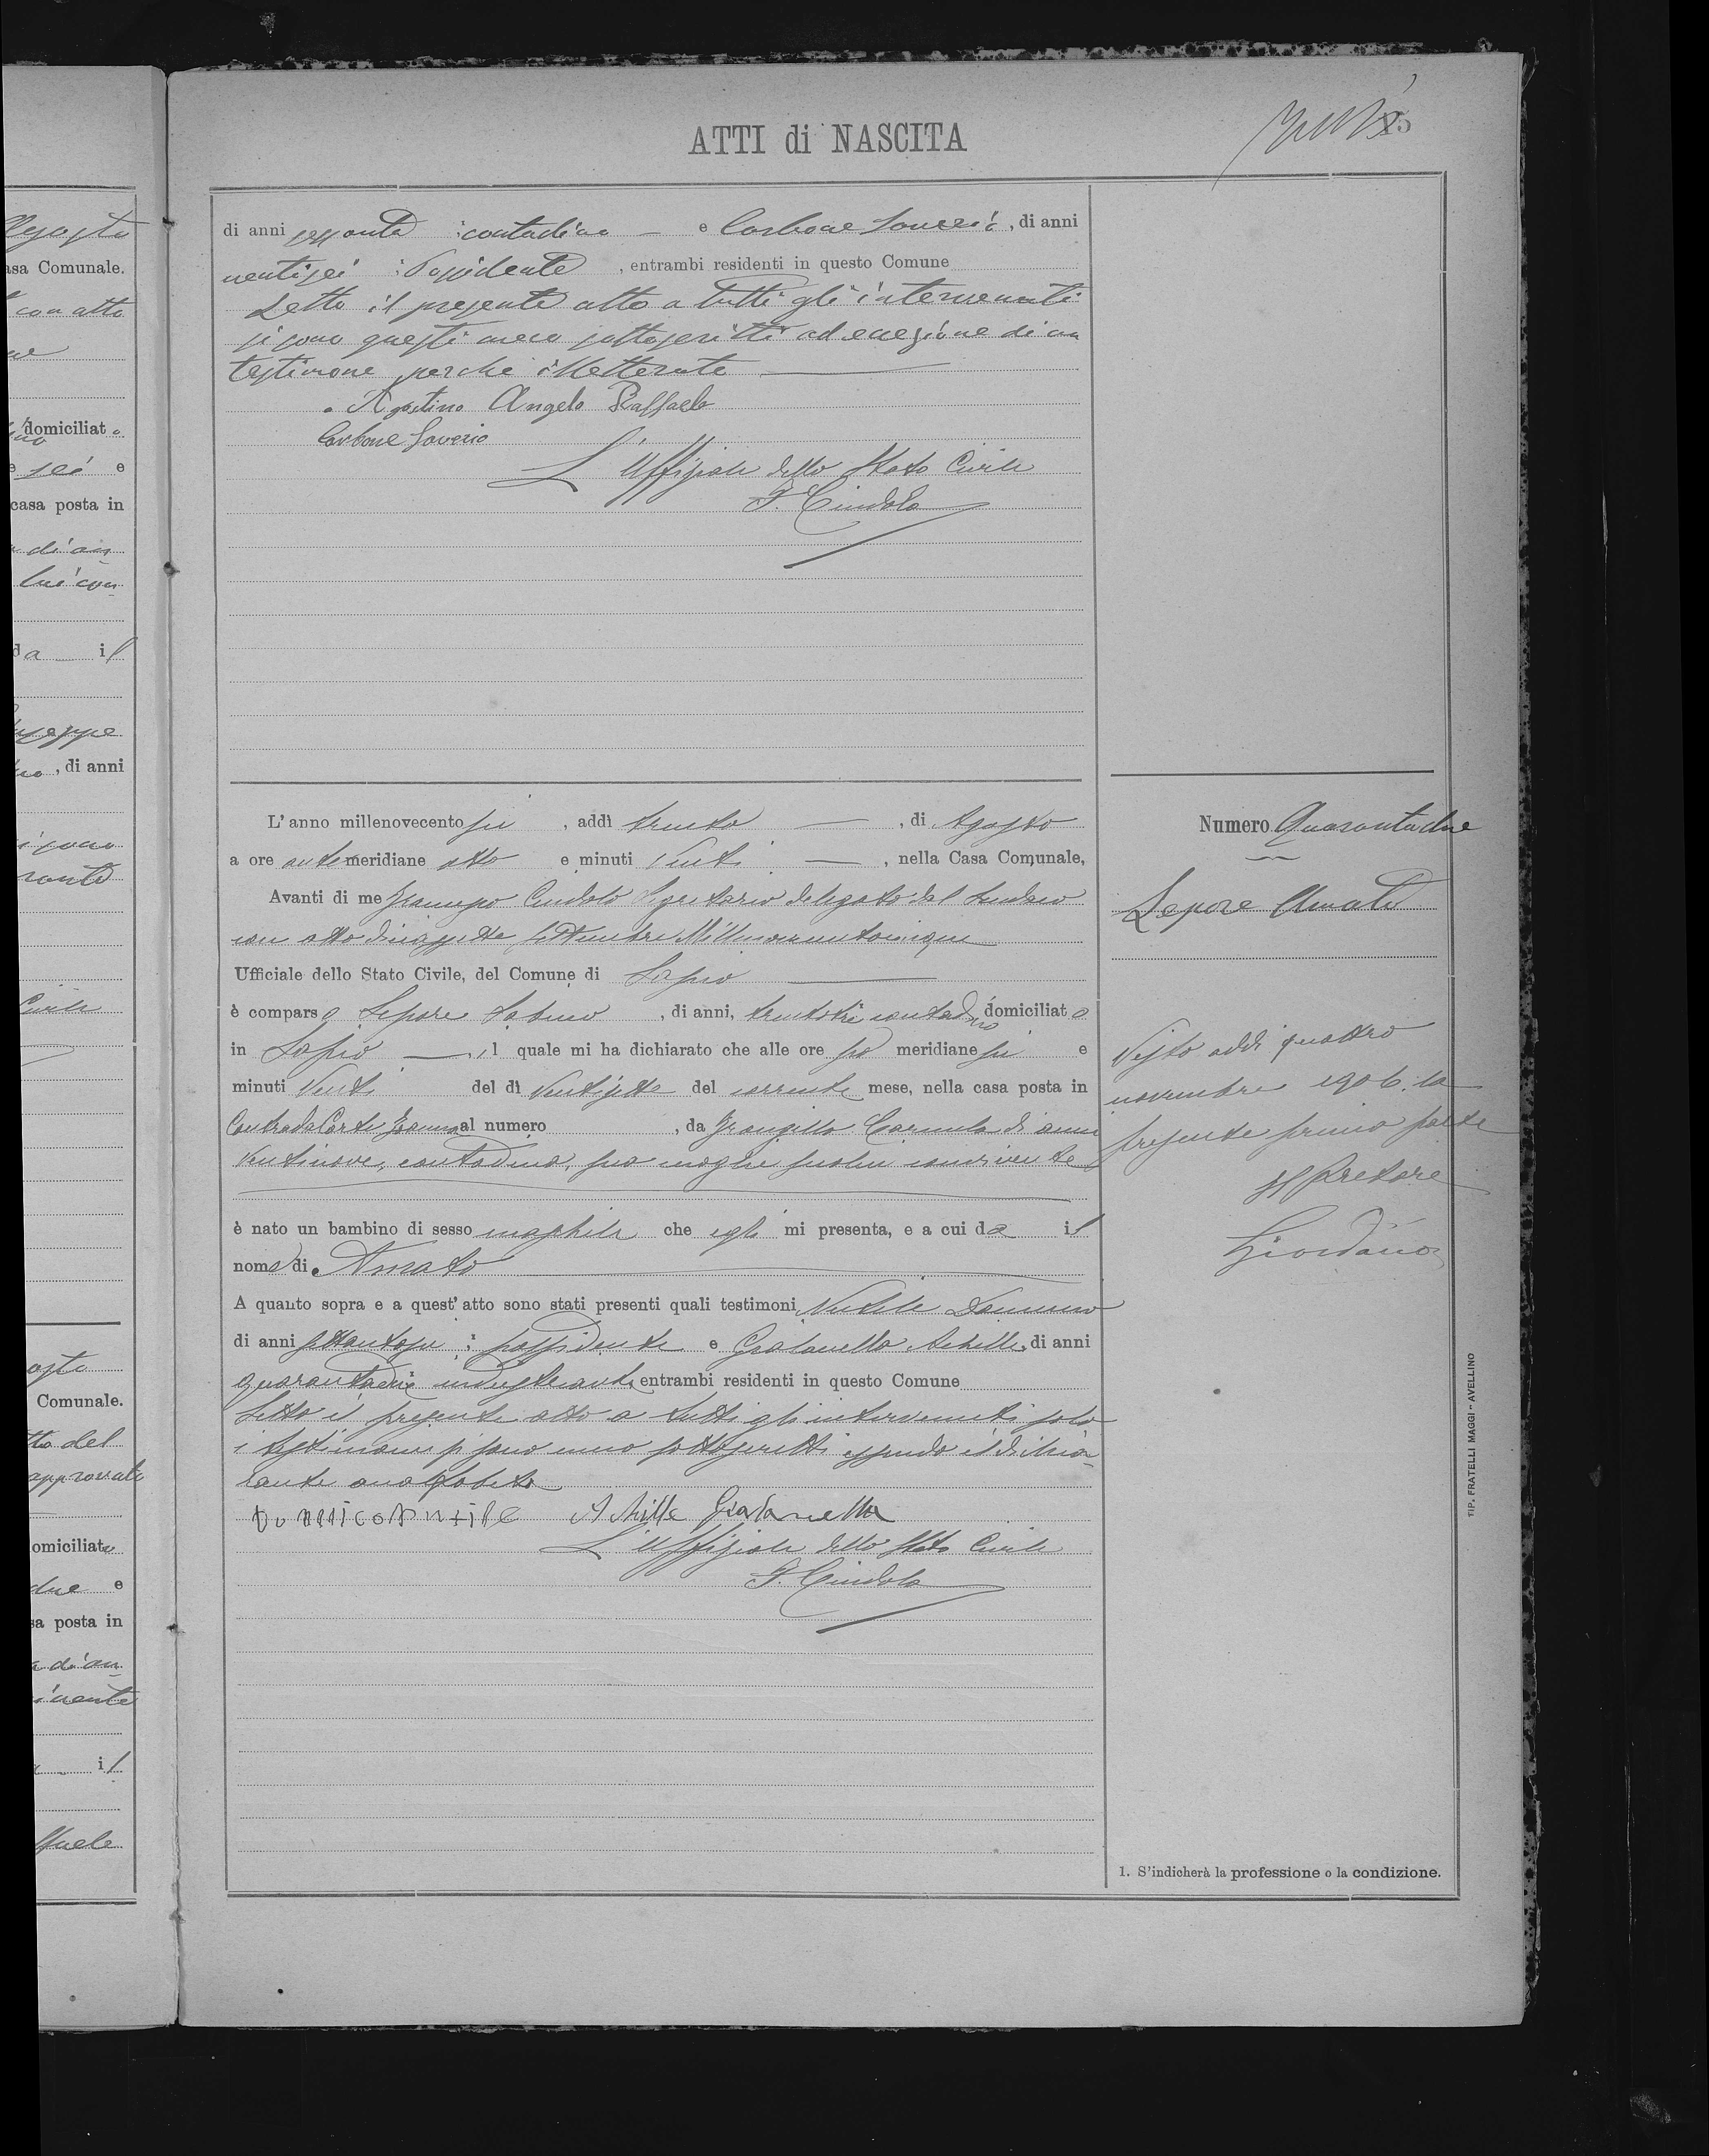 ATTI di NASCITA
25
di anni sessanta contadino e Carbone Saverio, di anni
ventisei Possidente, entrambi residenti in questo Comune
Letto il presente atto a tutti gli intervenuti
si sono questi meco sottoscritti ad eccezione di un
testimone perche illetterate
Agostino Angelo Raffaele
Carbone Saverio
L'Uffiziale dello Stato Civile
F. Cindolo
L'anno millenovecento sei, addì trenta, di Agosto
a ore antemeridiane otto e minuti venti, nella Casa Comunale,
Avanti di me Cindolo Segretario delegato dal Sindaco
con atto diciassette settembre Millenovecentocinque
Ufficiale dello Stato Civile, del Comune di Lapio
è comparso Lepore Sabino, di anni, trentatre contadino domiciliato
in Lapio, il quale mi ha dichiarato che alle ore meridiane sei e
minuti venti del dì ventisette del corrente mese, nella casa posta in
Contrada al numero, da Carmela di anni
ventinove, contadina, sua moglie seco lui convivente
è nato un bambino di sesso maschile che egli mi presenta, e a cui da il
nome di Amato
A quanto sopra e a quest'atto sono stati presenti quali testimoni Domenico
di anni settantasei possidente e Achille, di anni
entrambi residenti in questo Comune
Letto il presente atto a tutti gli intervenuti solo
i testimoni si sono meco sottoscritti essendo il dichia-
rante analfabeta
Achille
L'Uffiziale dello Stato Civile
F. Cindolo
Numero Quarantadue
Lepore Amato
Visto addi quattro
novembre 1906 la
presente prima parte
Il Pretore
Giordano
1. S'indicherà la professione o la condizione.
TIP. FRATELLI MAGGI - AVELLINO
Agosto
asa Comunale.
con atto
domiciliato
sei e
casa posta in
di an
lui con
da il
, di anni
sono
Civile
Comunale.
tto del
approvato
omiciliato
due e
sa posta in
di an
ivente
il